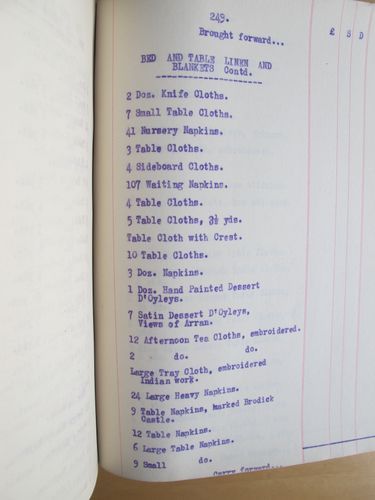 249.
Brought forward...
£ S D
BED AND TABLE LINEN AND
BLANKETS Contd.
2 Doz. Knife Cloths.
7 Small Table Cloths.
41 Nursery Napkins.
3 Table Cloths.
4 Sideboard Cloths.
107 Waiting Napkins.
4 Table Cloths.
5 Table Cloths, 3½ yds.
Table Cloth with Crest.
10 Table Cloths.
3 Doz. Napkins.
1 Doz. Hand Painted Dessert
D'Oyleys.
7 Satin Dessert D'Oyleys,
Views of Arran.
12 Afternoon Tea Cloths, embroidered.
2 do. do.
Large Tray Cloth, embroidered
Indian work.
24 Large Heavy Napkins.
9 Table Napkins, marked Brodick
Castle.
12 Table Napkins.
6 Large Table Napkins.
9 Small do.
Carry forward...